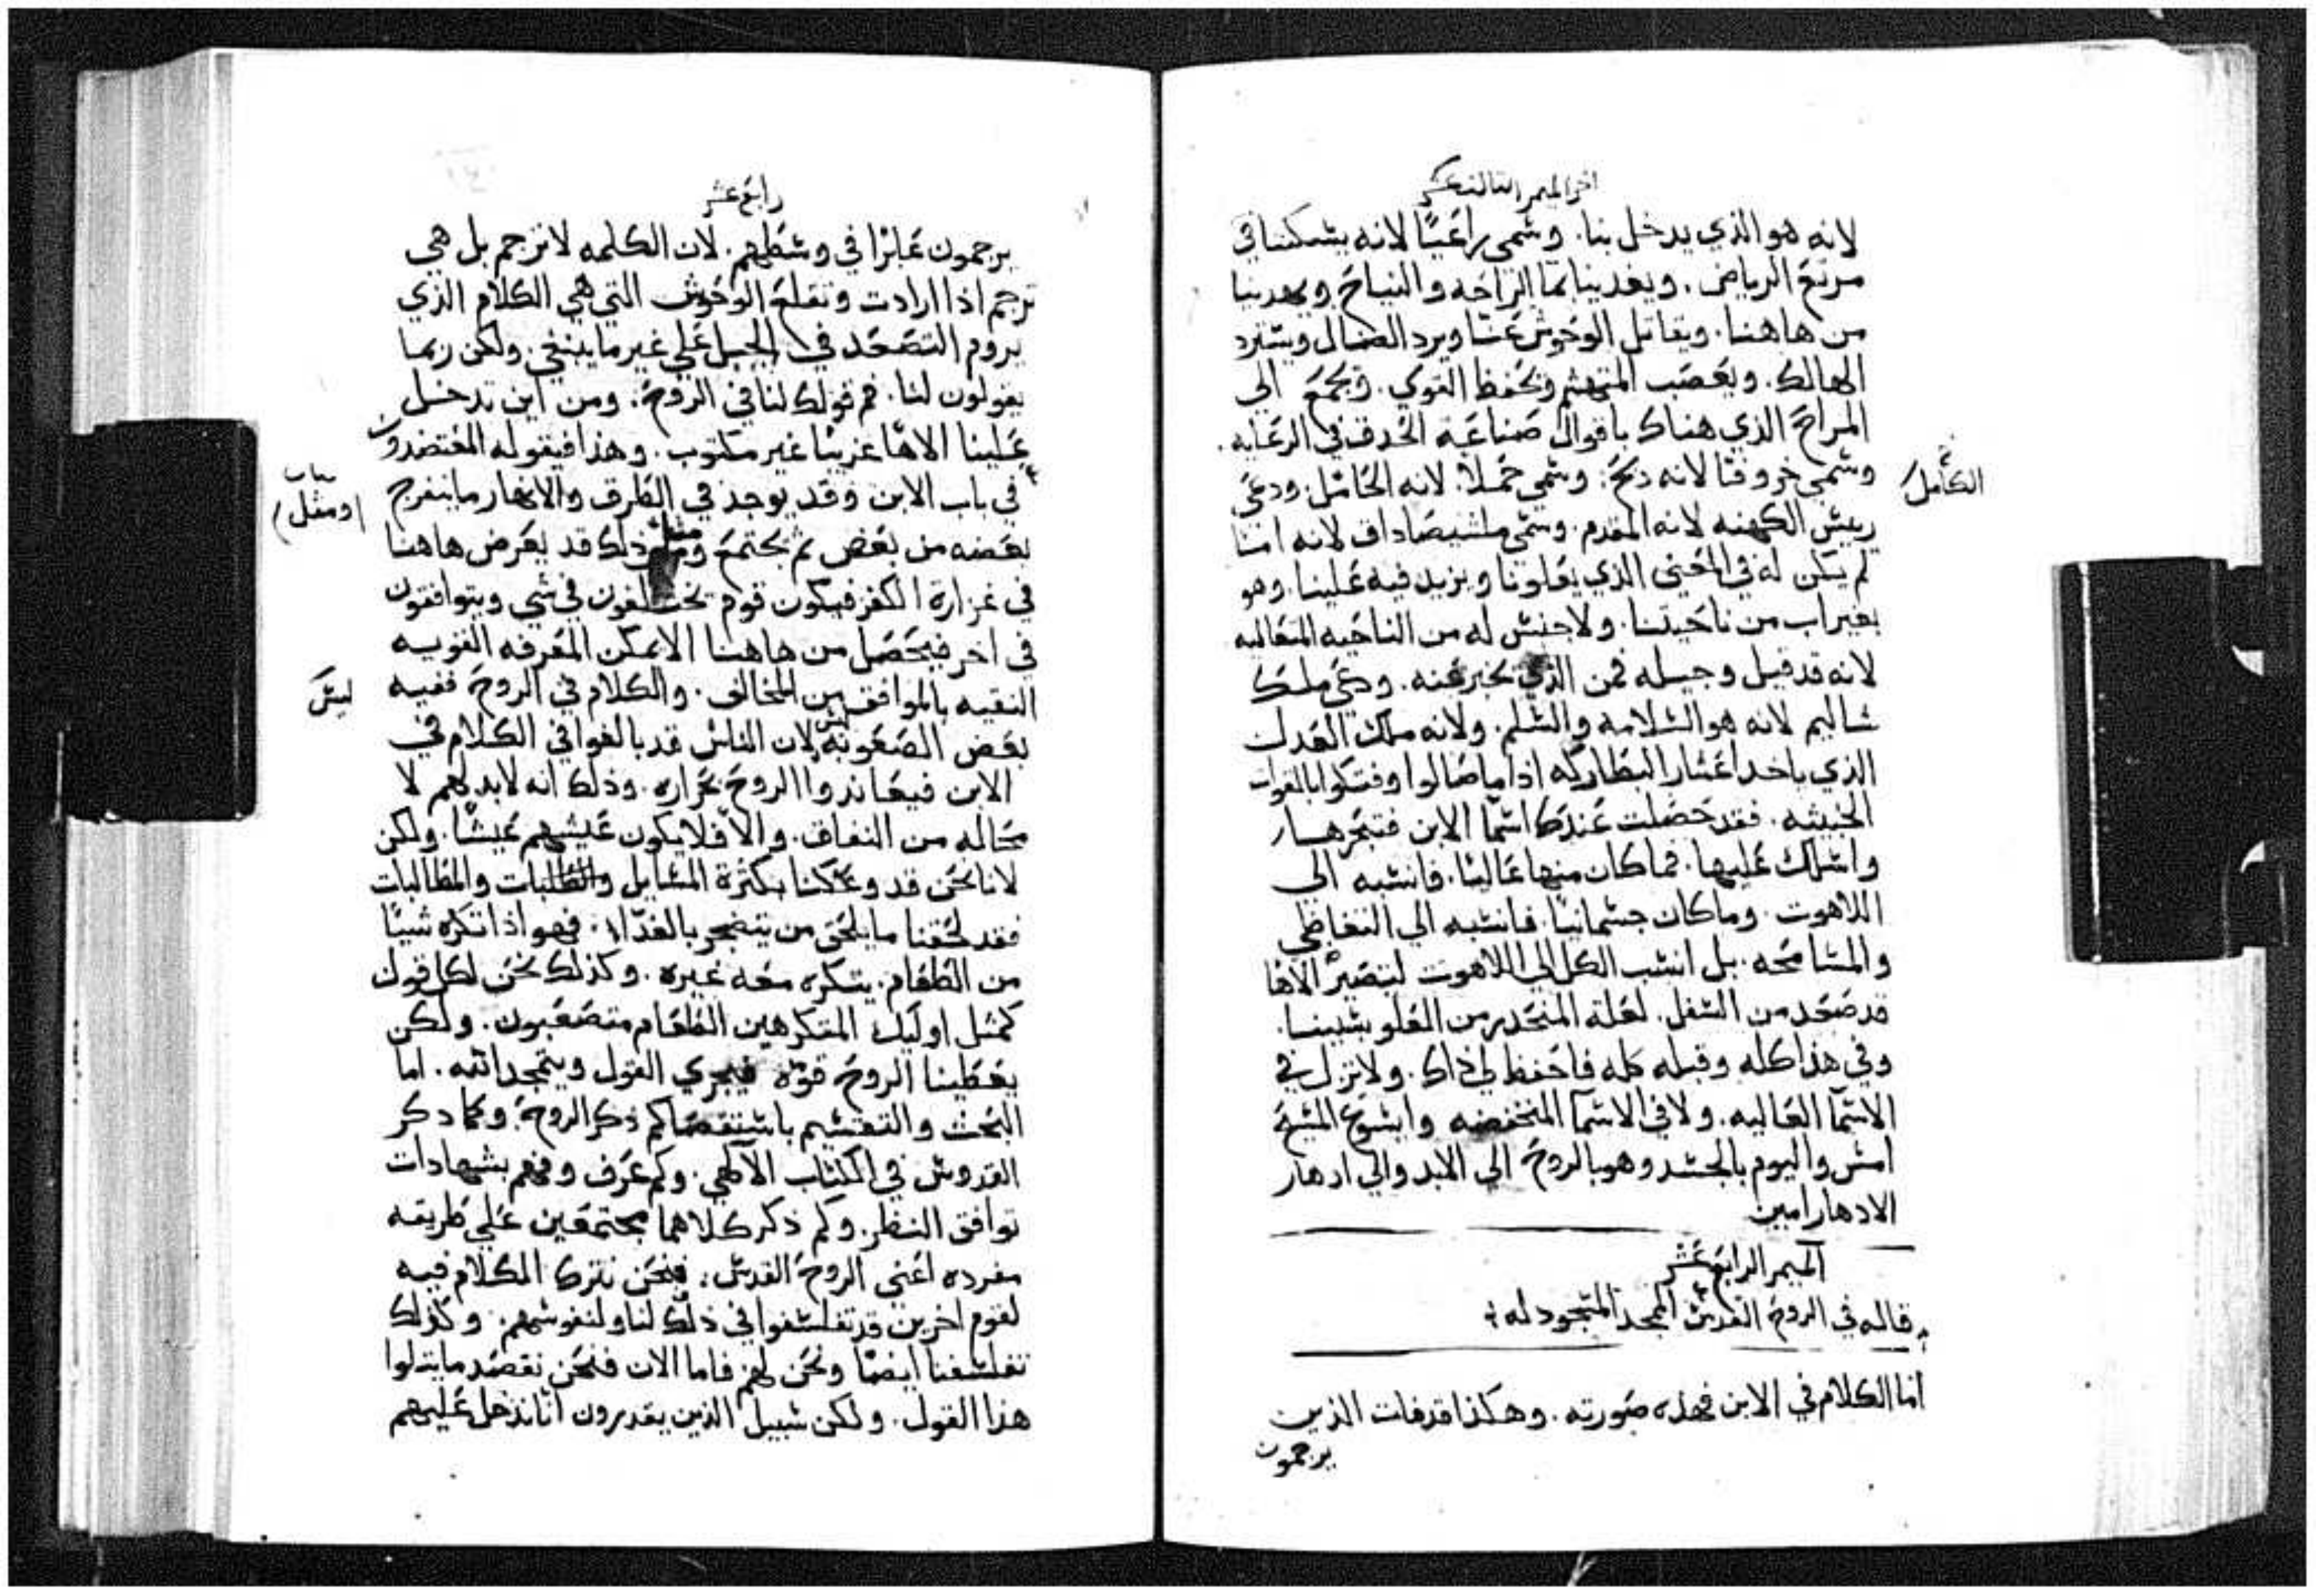 اخر الميمر الثالث عشر
لانه هو الذي يدخل بنا. وسمي راعيًا لانه يسكننا في
مرتع الرياض. ويغدينا بما الراحه والنياح ويهدينا
من هاهنا. ويقاتل الوحوش عنا ويرد الضال ويسترد
الهالك. ويعصب المتهشم ويحفظ القوي. ويجمع الي
المراح الذي هناك باقوال صناعة الحدق في الرعايه.
وسمي خروفا لانه دبح. وسمي حملا. لانه الكامل. ودعي
الكامل
رييس الكهنه لانه المقدم. وسمي ملشيصاداق لانه امنا
لم يكن له في المعني الذي يعلونا ويزيد فيه علينا. وهو
بغير اب من ناحيتنا. ولا جنس له من الناحيه المتعاليه
لانه قد قيل وجيله فمن الذي يخبر عنه. ودعي ملك
شاليم لانه هو السلامه والسلم. ولانه ملك العدل
الذي ياخد اعشار البطاركه اذا ما صالوا وفتكوا بالقوات
الخبيثه. فقد حصلت عندك اسما الابن فتبحرها
واسلك عليها. فما كان منها عاليًا. فانسبه الي
اللاهوت. وما كان جسمانيا. فانسبه الي التعاطي
والمسامحه. بل انسب الكل الي اللاهوت لتصير الاها
قد صعد من السفل. لعلة المنحدر من العلو بسببنا.
وفي هذا كله وقبله كله فاحفظ لي ذاك. ولا تزل في
الاسما العاليه. ولا في الاسما المنخفضه وايسوع المسيح
امس واليوم بالجسد وهو بالروح الي الابد والي ادهار
الادهار امين
الميمر الرابع عشر
قاله في الروح القدس الممجد المسجود له
اما الكلام في الابن فهذه صورته. وهكذا قد فات الذين
يرجمون
رابع عشر
يرجمون عابرًا في وسطهم. لان الكلمه لا ترجم بل هي
ترجم اذا ارادت وتقلع الوحوش التي هي الكلام الذي
يروم التصعد في الجبل علي غير ما ينبغي. ولكن ربما
يقولون لنا. فم قولك لنا في الروح. ومن اين تدخل
علينا الاها غريبا غير مكتوب. وهذا فيقوله المقتصدون
في باب الابن وقد يوجد في الطرق والانهار ما ينفرج
ومثل
بعضه من بعض ثم يجتمع ومثل ذلك قد يعرض هاهنا
في غزارة الكفر فيكون قوم يختلفون في شي ويتوافقون
في اخر فيحصل من هاهنا الا يمكن المعرفه القويه
النقيه بالموافق من المخالف. والكلام في الروح ففيه
ليس
بعض الصعوبة لان الناس قد بالغوا في الكلام في
الابن فيعاندوا الروح بحراره. وذلك انه لا بد لهم لا
محاله من النفاق. والا فلا يكون عيشهم عيشًا. ولكن
لانا نحن قد وعكنا بكثرة المسايل والطلبات والمطالبات
فقد لحقنا ما يلحق من يتضجر بالغدا. فهو اذا تكره شيًا
من الطعام. يتكره معه غيره. وكذلك نحن لكل قول
كمثل اوليك المتكرهين الطعام متصعبون. ولكن
يعطينا الروح قوة فيجري القول ويتمجد الله. اما
البحث والتقسيم باستقصا كم ذكر الروح. وكما دكر
القدوس في الكتاب الالهي. وكم عرف وفهم بشهادات
توافق النظر. وكم ذكر كلاهما مجتمعين علي طريقه
مفرده اعني الروح القدس. فنحن نترك الكلام فيه
لقوم اخرين قد تفلسفوا في ذلك لنا ولنفوسهم. وكذلك
تفلسفنا ايضا ونحن لهم فاما الان فنحن نقصد ما يتلوا
هذا القول. ولكن سبيل الذين يقدرون انا ندخل عليهم